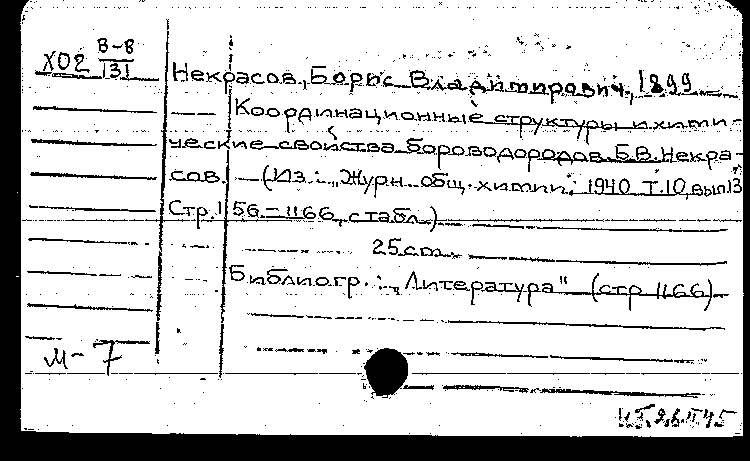 Х02 В-8
131
Некрасов, Борис Владимирович, 1899
Координационные структуры и хими-
ческие свойства бороводородов. Б.В. Некра-
сов. — (Из: „Журн. общ. химии", 1940 Т.10, вып.13
Стр. 1156-1166, с табл.)
25 cm.
Библиогр.: „Литература" (стр 1166)
М-7